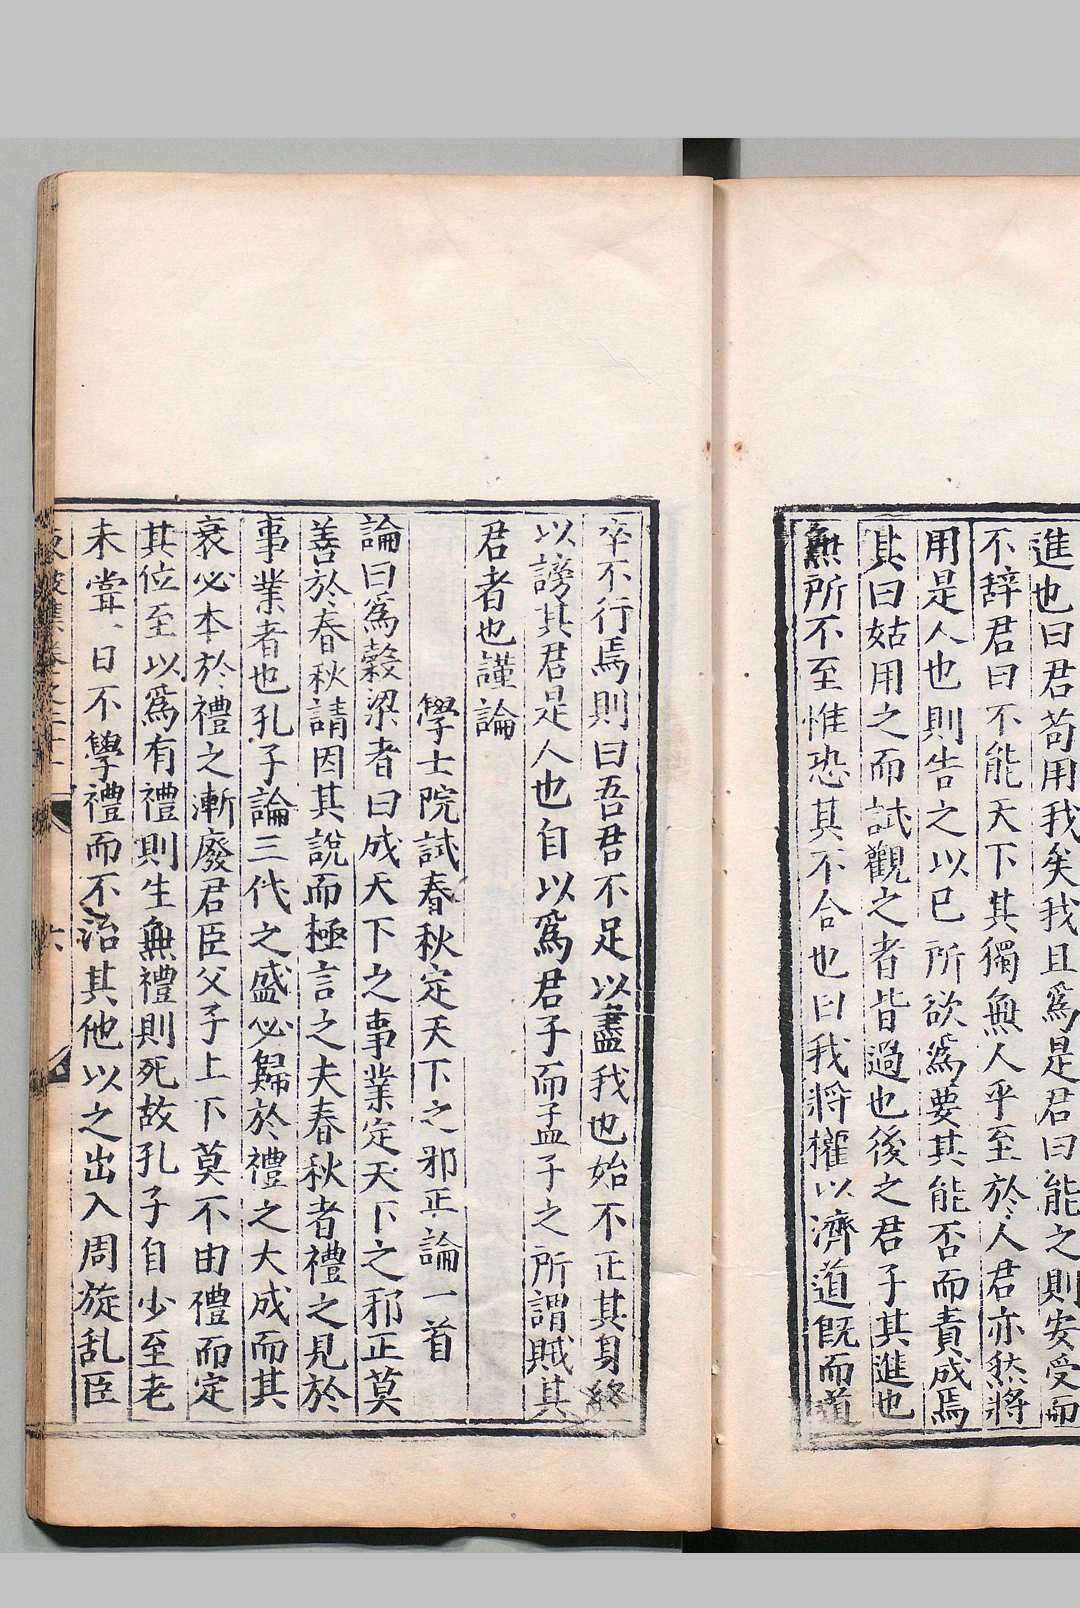 進也曰君苟用我矣我且爲是君曰能之則安受而
不辭君曰不能天下其獨無人乎至於人君亦然將
用是人也則告之以已所欲爲要其能否而責成焉
其曰姑用之而試觀之者皆過也後之君子其進也
無所不至惟恐其不合也曰我將權以濟道旣而道
卒不行焉則曰吾君不足以盡我也始不正其身終
以謗其君是人也自以爲君子而孟子之所謂賊其
君者也謹論
學士院試春秋定天下之邪正論一首
論曰爲穀梁者曰成天下之事業定天下之邪正莫
善於春秋請因其說而極言之夫春秋者禮之見於
事業者也孔子論三代之盛必歸於禮之大成而其
衰必本於禮之漸廢君臣父子上下莫不由禮而定
其位至以爲有禮則生無禮則死故孔子自少至老
未甞一日不學禮而不治其他以之出入周旋乱臣
六